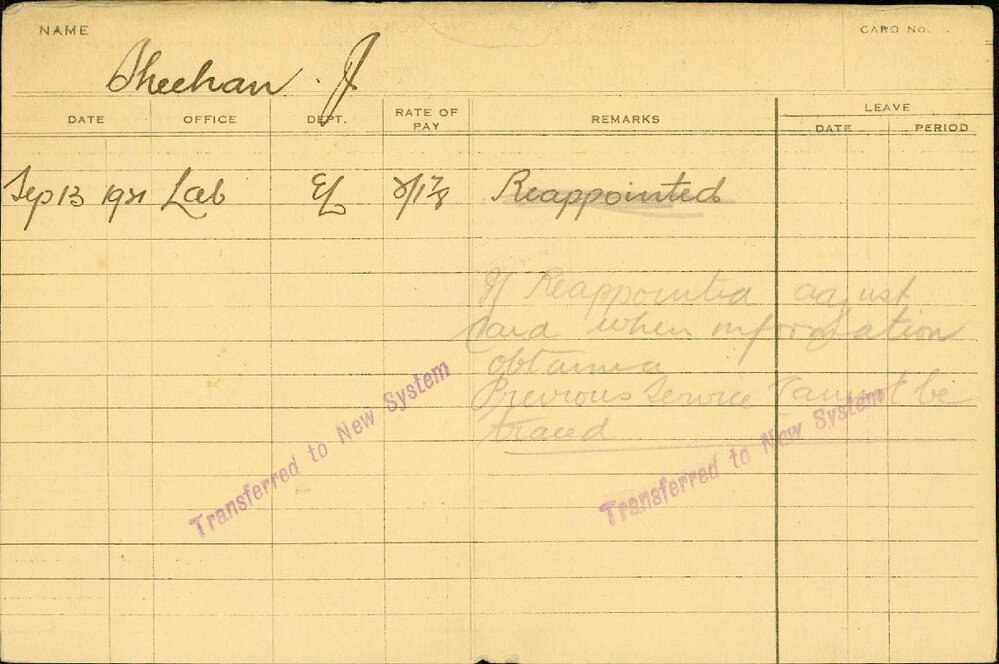 NAME
CARD NO.
Sheehan. J
DATE OFFICE DEPT. RATE OF PAY REMARKS LEAVE
DATE PERIOD
Sep 13 1921 Lab EL Reappointed
If Reappointed adjust
card when information
obtained
Previous Service Cannot be
traced
Transferred to New System
Transferred to New System